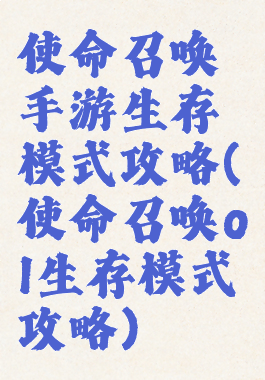 使命召唤
手游生存
模式攻略(
使命召唤o
l生存模式
攻略)